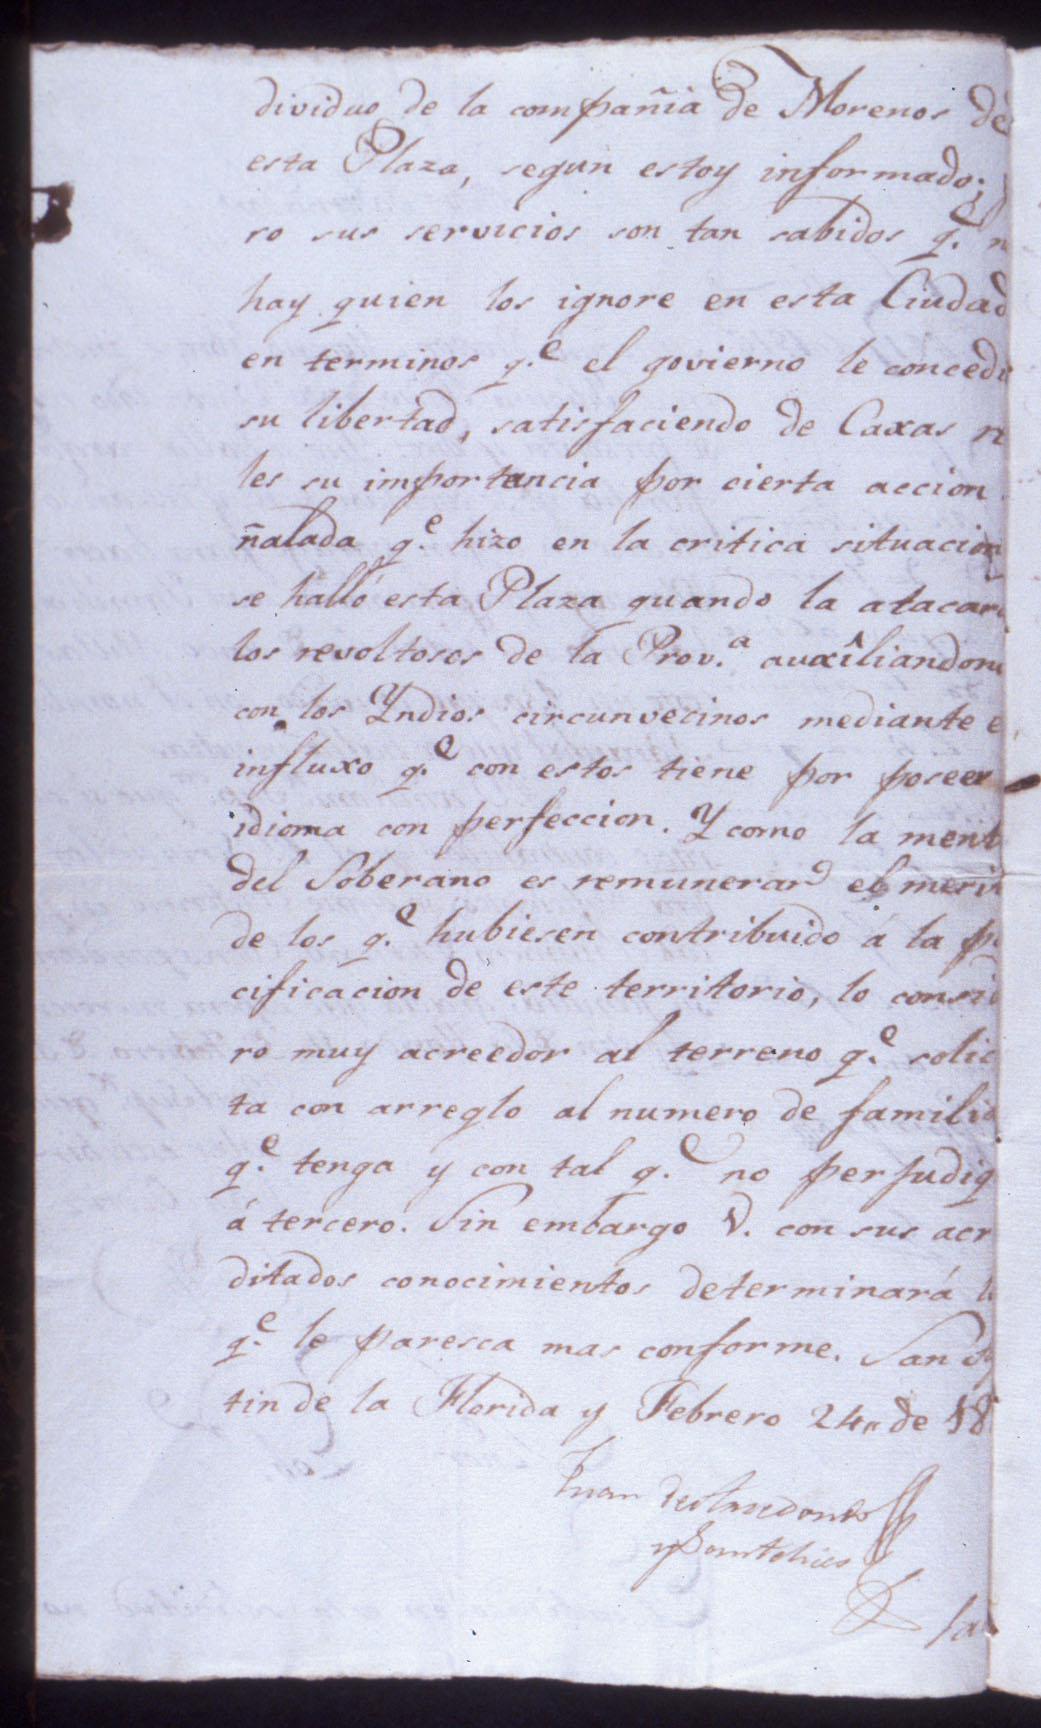 dividuo de la compañia de Morenos de
esta Plaza, segun estoy informado;
ro sus servicios son tan sabidos q.e n
hay quien los ignore en esta Ciudad
en terminos q.e el govierno le concedi
su libertad, satisfaciendo de Caxas r
les su importancia por cierta accion
ñalada q.e hizo en la critica situacion
se halló esta Plaza quando la atacaro
los revoltosos de la Prov.a auxîliandonu
con los Yndios circunvecinos mediante e
influxo q.e con estos tiene por poseer
idioma con perfeccion. Y como la ment
del Soberano es remunerar el merit
de los q.e hubiesen contribuido á la pa
cificacion de este territorio, lo consid
ro muy acreedor al terreno q.e solic
ta con arreglo al numero de familia
q.e tenga y con tal q.e no perjudiq
á tercero. Sin embargo V. con sus acr
ditados conocimientos determinará l
q.e le paresca mas conforme. San A
tin de la Florida y Febrero 24,, de 18
Juan de
y